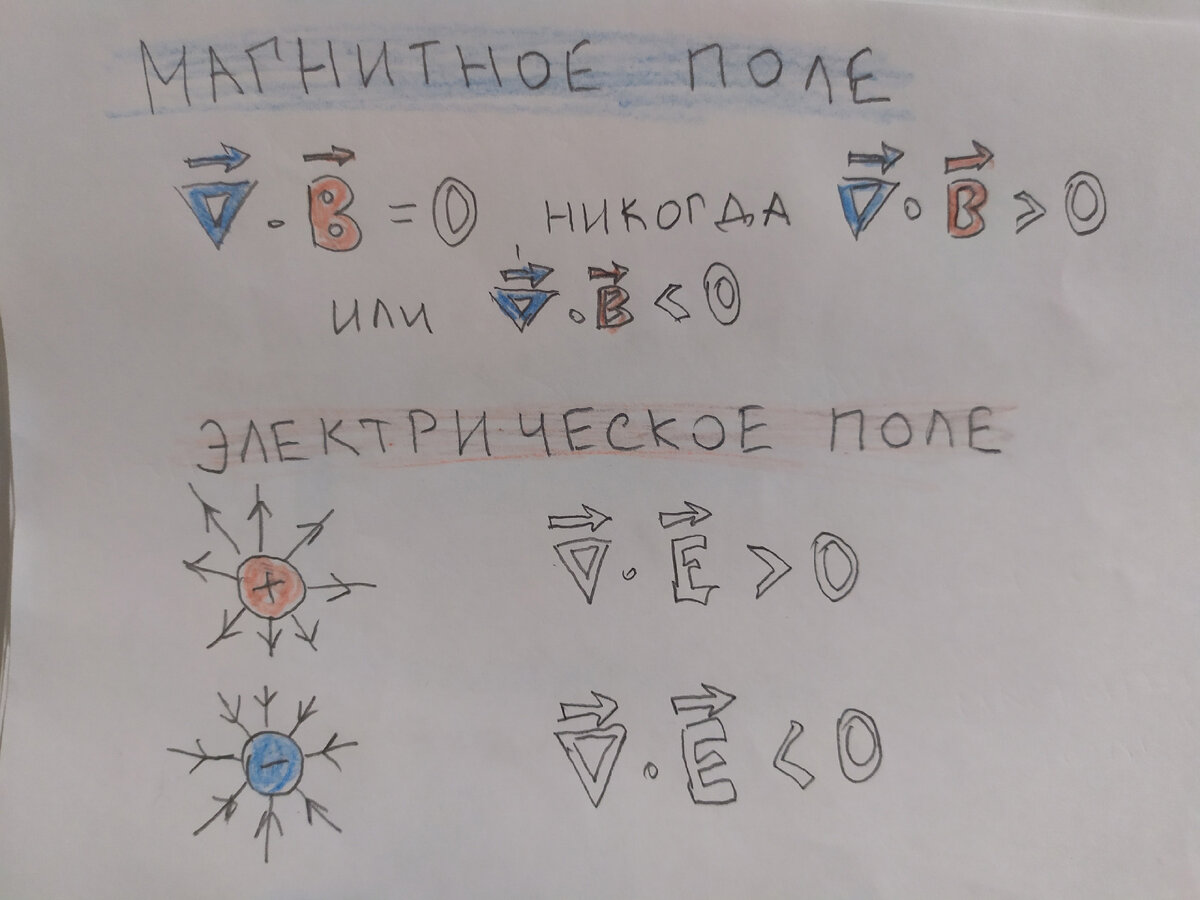 МАГНИТНОЕ ПОЛЕ
∇⃗ · B⃗ = 0 НИКОГДА ∇⃗ · B⃗ > 0
ИЛИ ∇⃗ · B⃗ < 0
ЭЛЕКТРИЧЕСКОЕ ПОЛЕ
+ ∇⃗ · E⃗ > 0
- ∇⃗ · E⃗ < 0